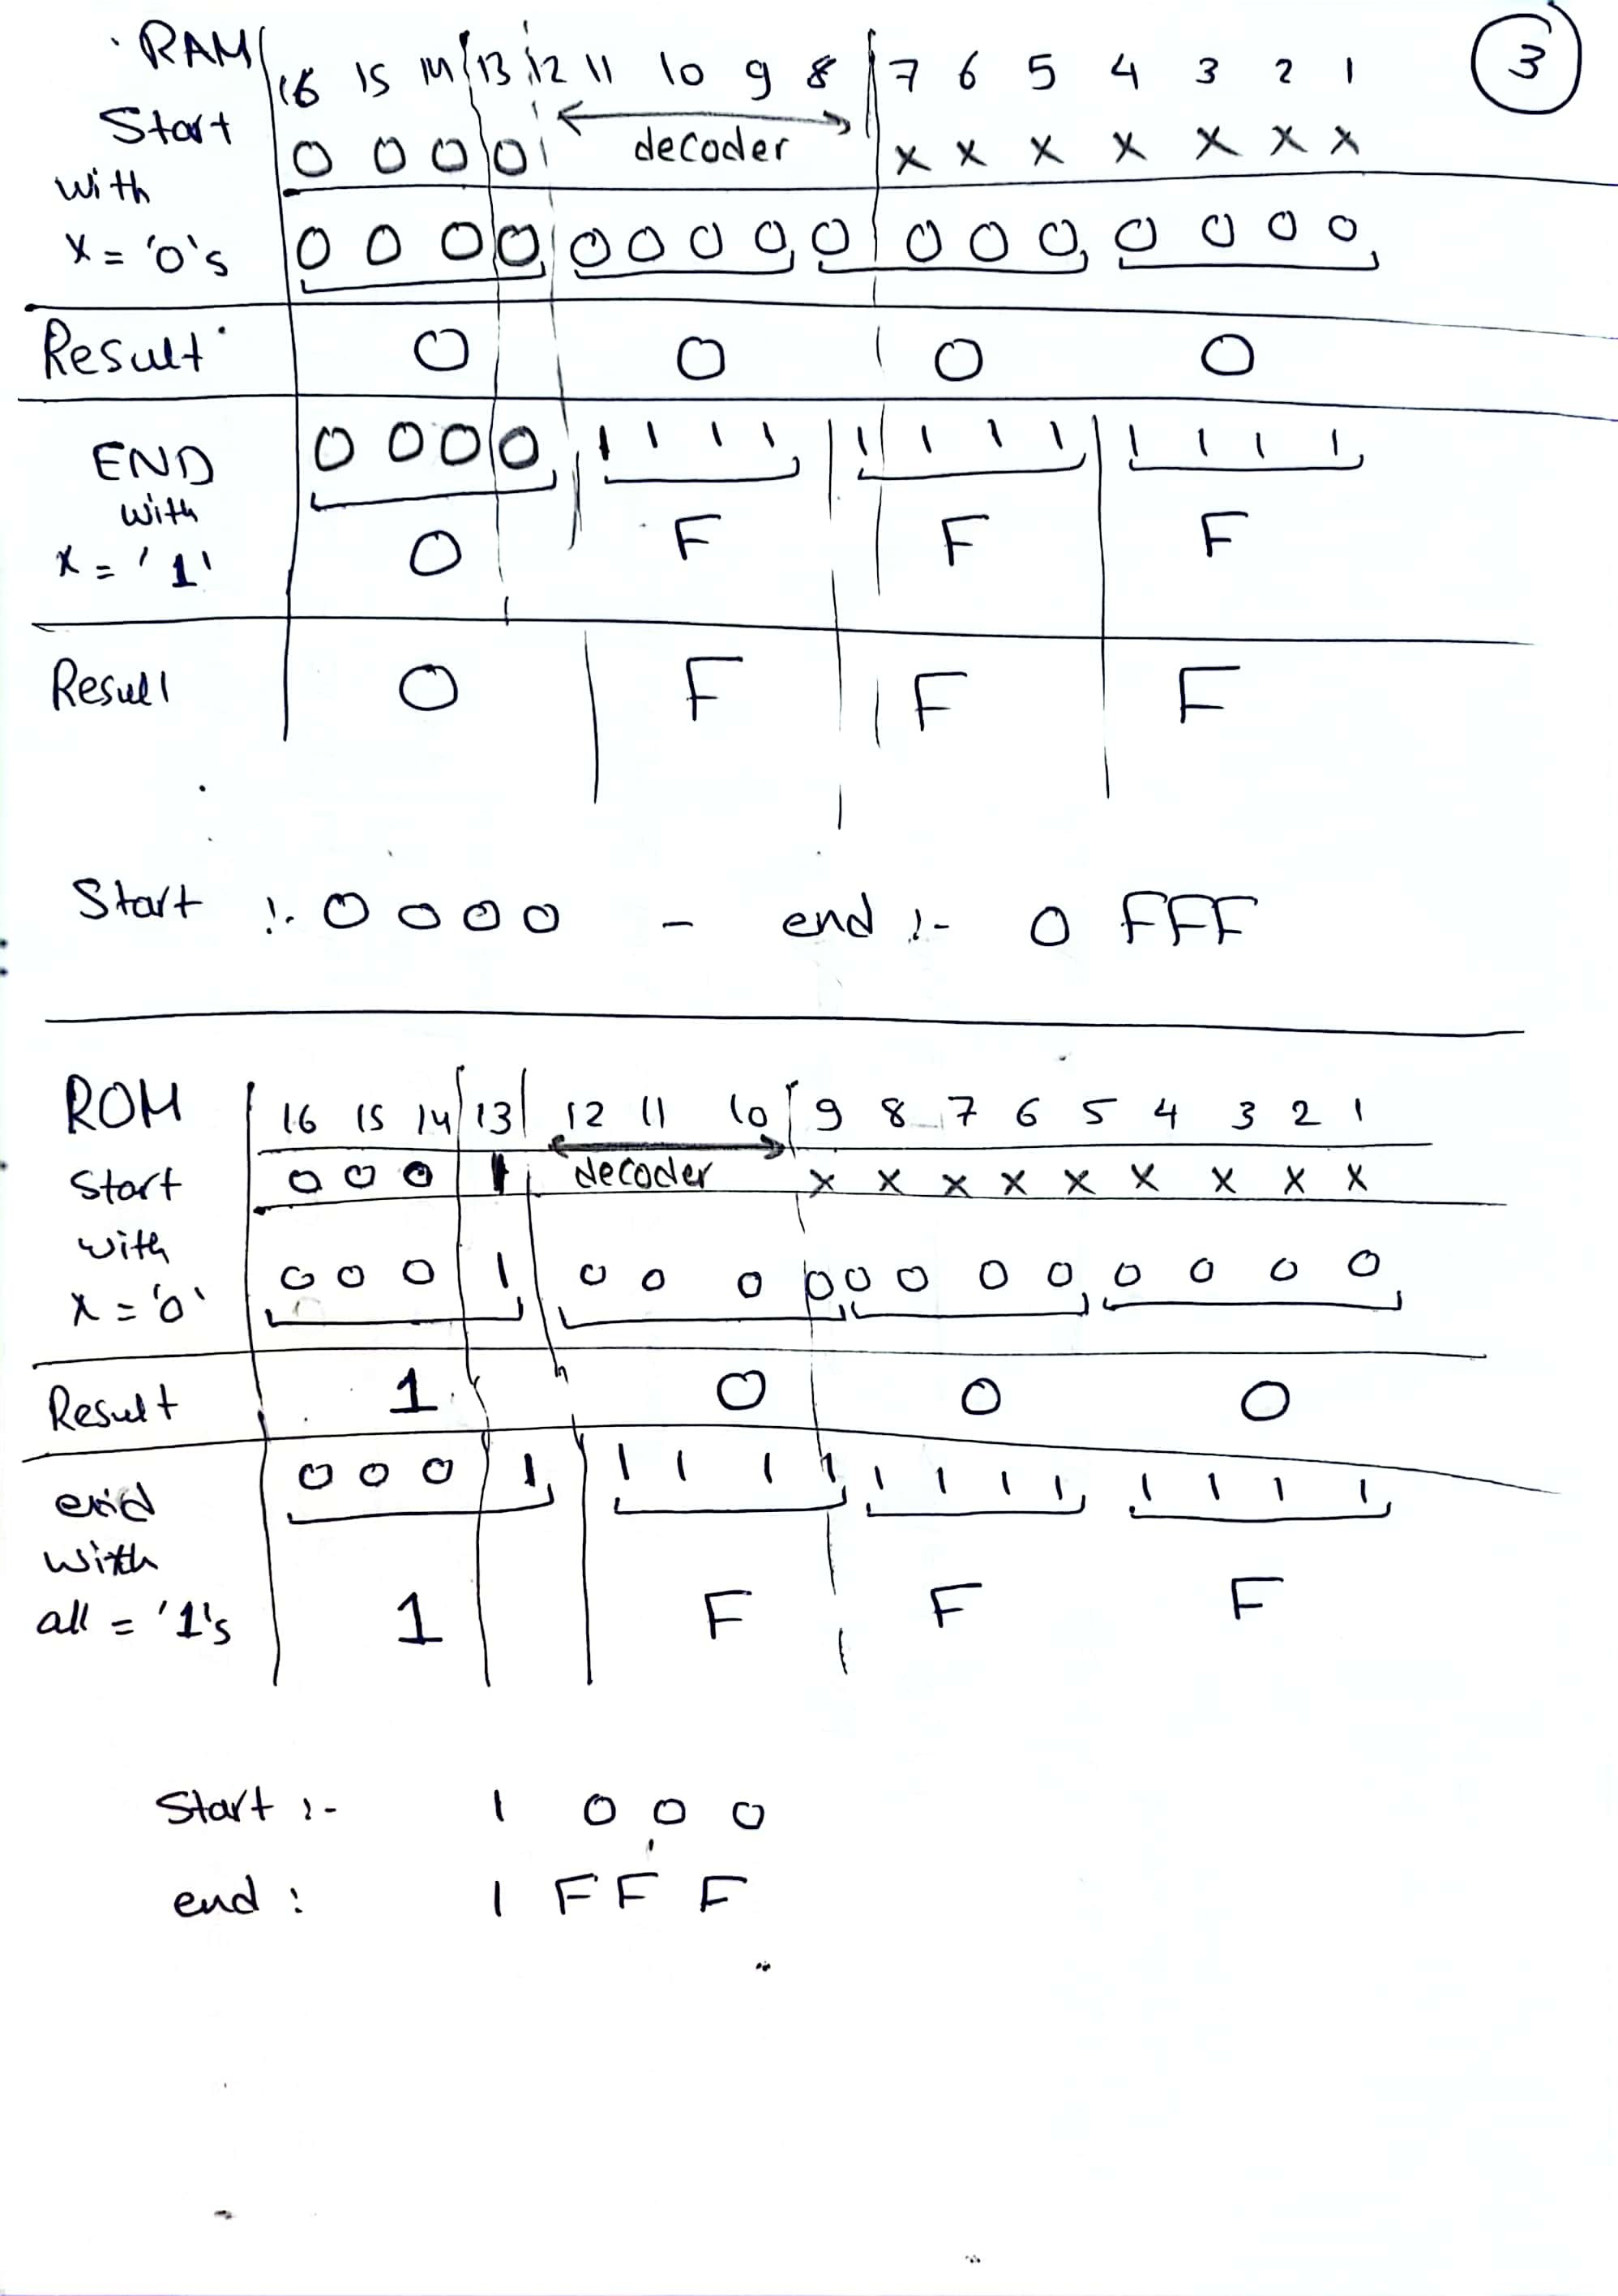 RAM 16 15 14 13 12 11 10 9 8 7 6 5 4 3 2 1 3
Start 0 0 0 0 decoder x x x x x x x
with
x = '0's 0 0 0 0 0 0 0 0 0 0 0 0 0 0 0 0
Result 0 0 0 0
END 0 0 0 0 1 1 1 1 1 1 1 1 1 1 1 1
with
x = '1' 0 F F F
Result 0 F F F
Start :- 0 0 0 0 - end :- 0 FFF
ROM 16 15 14 13 12 11 10 9 8 7 6 5 4 3 2 1
Start 0 0 0 1 decoder x x x x x x x x x
with
x = '0' 0 0 0 1 0 0 0 0 0 0 0 0 0 0 0 0
Result 1 0 0 0
end 0 0 0 1 1 1 1 1 1 1 1 1 1 1 1 1
with
all = '1's 1 F F F
Start :- 1 0 0 0
end : 1 F F F